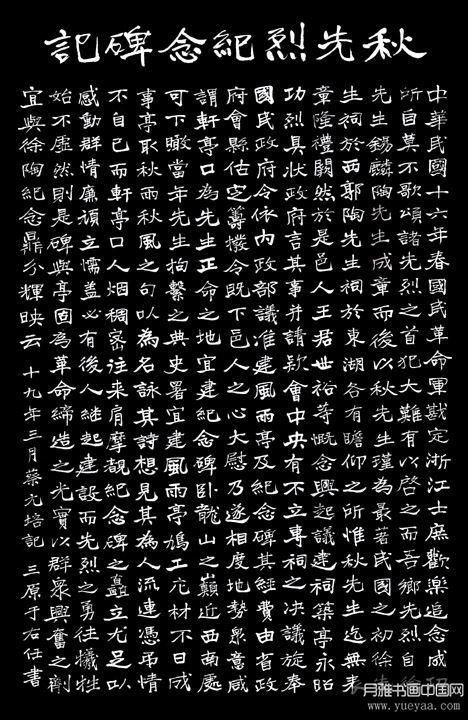 秋先烈紀念碑記
中華民國十六年春國民革命軍戡定浙江士庶歡樂追念成
所自莫不歌頌諸先烈之首犯大難有以啓之而吾鄉先烈自
先生錫麟陶先生成章而後以秋先生瑾為最著民國之初徐
生祠於西郭陶先生祠於東湖各有瞻仰之所惟秋先生迄無表
章隆禮闕然於是邑人王君世裕等慨念興起議建祠築亭永昭
功烈具狀政府言其事并請欵會中央有不立專祠之決議旋奉
國民政府令依內政部議准建風雨亭及紀念碑其經費由省政
府會縣估定籌撥令既下邑人之心大慰乃遂相度地勢衆意咸
謂軒亭口為先生正命之地宜建紀念碑臥龍山之巔近西南處
可下瞰當年先生拘繫之典史署宜建風雨亭鳩工庀材不日成
事亭取秋雨秋風之句以為名詠其詩想見其為人流連憑弔情
不自已而軒亭口人烟稠密往來肩摩覩紀念碑之矗立尤足以
感動群情廉頑立懦蓋必有後人繼起建設而先烈之勇往犧牲
始不虛然則是碑與亭固為革命締造之光實以群眾興奮之劑
宜與徐陶紀念鼎分輝映云 十九年三月蔡元培記 三原于右任書
月雅书画中国网
www.yueyaa.com